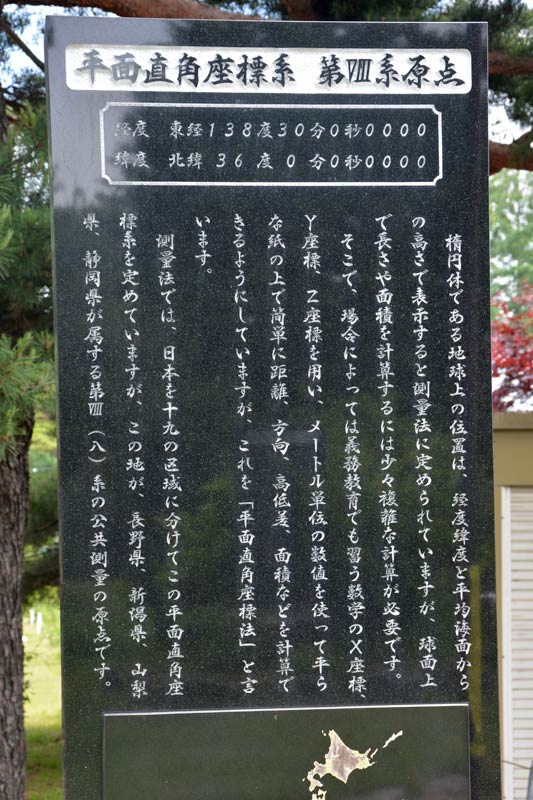 平面直角座標系 第Ⅷ系原点
経度 東経138度30分0秒0000
緯度 北緯36度0分0秒0000
楕円体である地球上の位置は、経度緯度と平均海面から
の高さで表示すると測量法に定められていますが、球面上
で長さや面積を計算するには少々複雑な計算が必要です。
そこで、場合によっては義務教育でも習う数学のX座標、
Y座標、Z座標を用い、メートル単位の数値を使って平ら
な紙の上で簡単に距離、方向、高低差、面積などを計算で
きるようにしていますが、これを「平面直角座標法」と言
います。
測量法では、日本を十九の区域に分けてこの平面直角座
標系を定めていますが、この地が、長野県、新潟県、山梨
県、静岡県が属する第Ⅷ(八)系の公共測量の原点です。